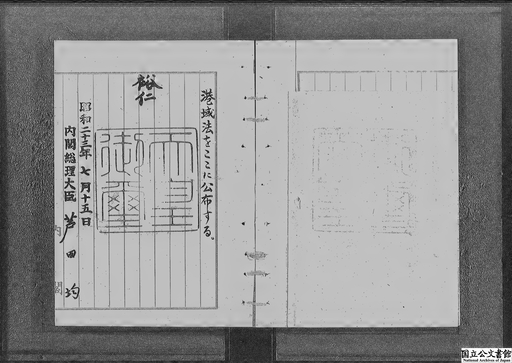 港域法をここに公布する。
裕仁
天皇
御璽
昭和二十三年七月十五日
内閣総理大臣 芦田均
内閣
国立公文書館
National Archives of Japan